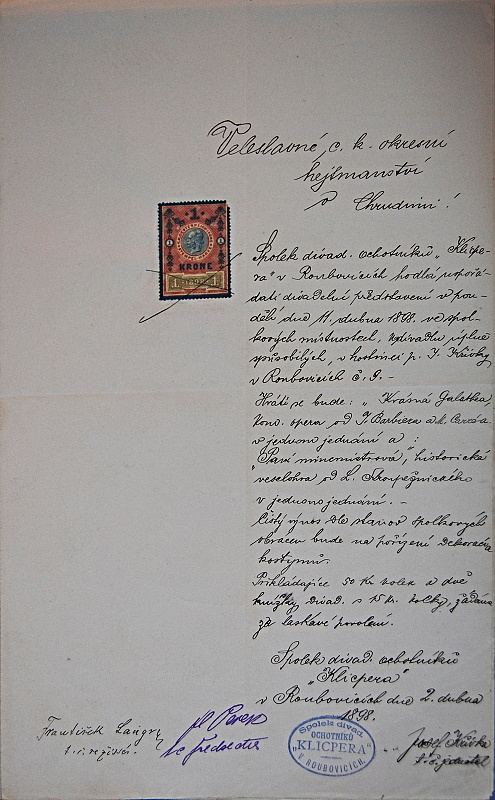 Veleslavné c. k. okresní
hejtmanství
v Chrudimi!
1
KRONE
1 1898 1
Spolek divad. ochotníků „Klicpe-
ra" v Roubovicích hodlá uspořá-
dati divadelní představení v pon-
dělí dne 11. dubna 1898. ve spol-
kových místnostech, ku divadlu úplně
způsobilých, v hostinci p. J. Křivky
v Roubovicích č. 9. –
Hráti se bude: „Krásná Galathea
kom. opera od J. Barbiera a
v jednom jednání a :
„Paní mincmistrová", historická
veselohra od L. Stroupežnického
v jednom jednání. –
Čistý výnos dle stanov spolkových
obrácen bude na pořízení dekorací a
kostymů.
Přikládajíce 50 kr kolek a dvě
knížky divad. s 15 kr. kolky, žádáme
za laskavé povolení.
Spolek divad. ochotníků
„Klicpera"
v Roubovicích dne 2. dubna
1898.
František Langr
t. č. režisér.
t. č. předseda
Spolek divad.
OCHOTNÍKŮ
„KLICPERA"
V ROUBOVICÍCH.
Josef Křivka
t. č. jednatel